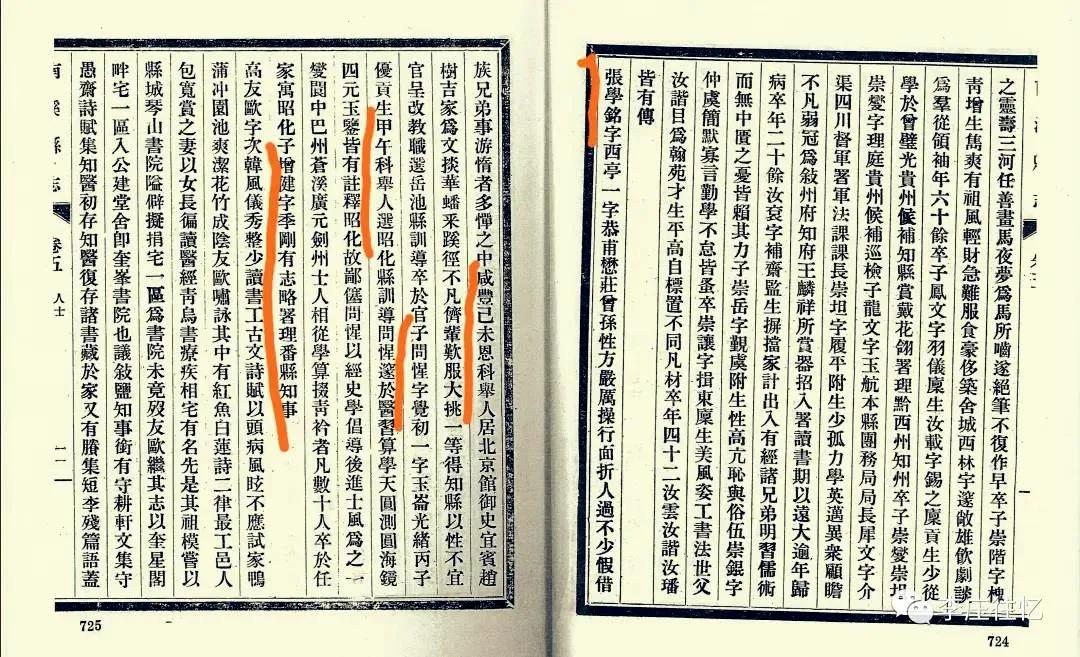 之靈壽三河任善畫馬夜夢爲馬所嚙遂絕筆不復作早卒子崇階字槐
靑增生雋爽有祖風輕財急難服食豪侈築舍城西林宇邃敞雄飮劇談
爲羣從領袖年六十餘卒子鳳文字羽儀廩生汝載字錫之廩貢生少從
學於曾璧光貴州候補知縣賞戴花翎署理黔西州知州卒子崇燮崇坦
崇燮字理庭貴州候補巡檢子龍文字玉航本縣團務局局長犀文字介
渠四川督軍署軍法課課長崇坦字履平附生少孤力學英邁異衆顧瞻
不凡弱冠爲敍州府知府王麟祥所賞器招入署讀書期以遠大逾年歸
病卒年二十餘汝袞字補齋監生摒擋家計出入有經諸兄弟明習儒術
而無中匱之憂皆賴其力子崇岳字覲虞附生性高亢恥與俗伍崇錕字
仲虞簡默寡言勤學不怠皆蚤卒崇讓字揖東廩生美風姿工書法世父
汝諧目爲翰苑才生平高自標置不同凡材卒年四十二汝雲汝諧汝璠
皆有傳
張學銘字西亭一字恭甫懋莊曾孫性方嚴厲操行面折人過不少假借
724
族兄弟事游惰者多憚之中咸豐己未恩科舉人居北京館御史宜賓趙
樹吉家爲文掞華蟠釆蹊徑不凡儕輩歎服大挑一等得知縣以性不宜
官呈改敎職選岳池縣訓導卒於官子問惺字覺初一字玉崙光緒丙子
優貢生甲午科舉人選昭化縣訓導問惺邃於醫習算學天圓測圓海鏡
四元玉鑒皆有註釋昭化故鄙僿問惺以經史學倡導後進士風爲之一
變閬中巴州蒼溪廣元劍州士人相從學算掇靑衿者凡數十人卒於任
家寓昭化子增健字季剛有志略署理番縣知事
高友歐字次韓風儀秀整少讀書工古文詩賦以頭病風眩不應試家鴨
蒲冲園池爽潔花竹成陰友歐嘯詠其中有紅魚白蓮詩二律最工邑人
包寬賞之妻以女長徧讀醫經靑烏書療疾相宅有名先是其祖模嘗以
縣城琴山書院隘僻擬捐宅一區爲書院未竟歿友歐繼其志以奎星閣
畔宅一區入公建堂舍卽奎峯書院也議敍鹽知事銜有守耕軒文集守
愚齋詩賦集知醫初存知醫復存諸書藏於家又有賸集短李殘篇語蓋
南溪縣志
卷五
人士
725
李庄往忆